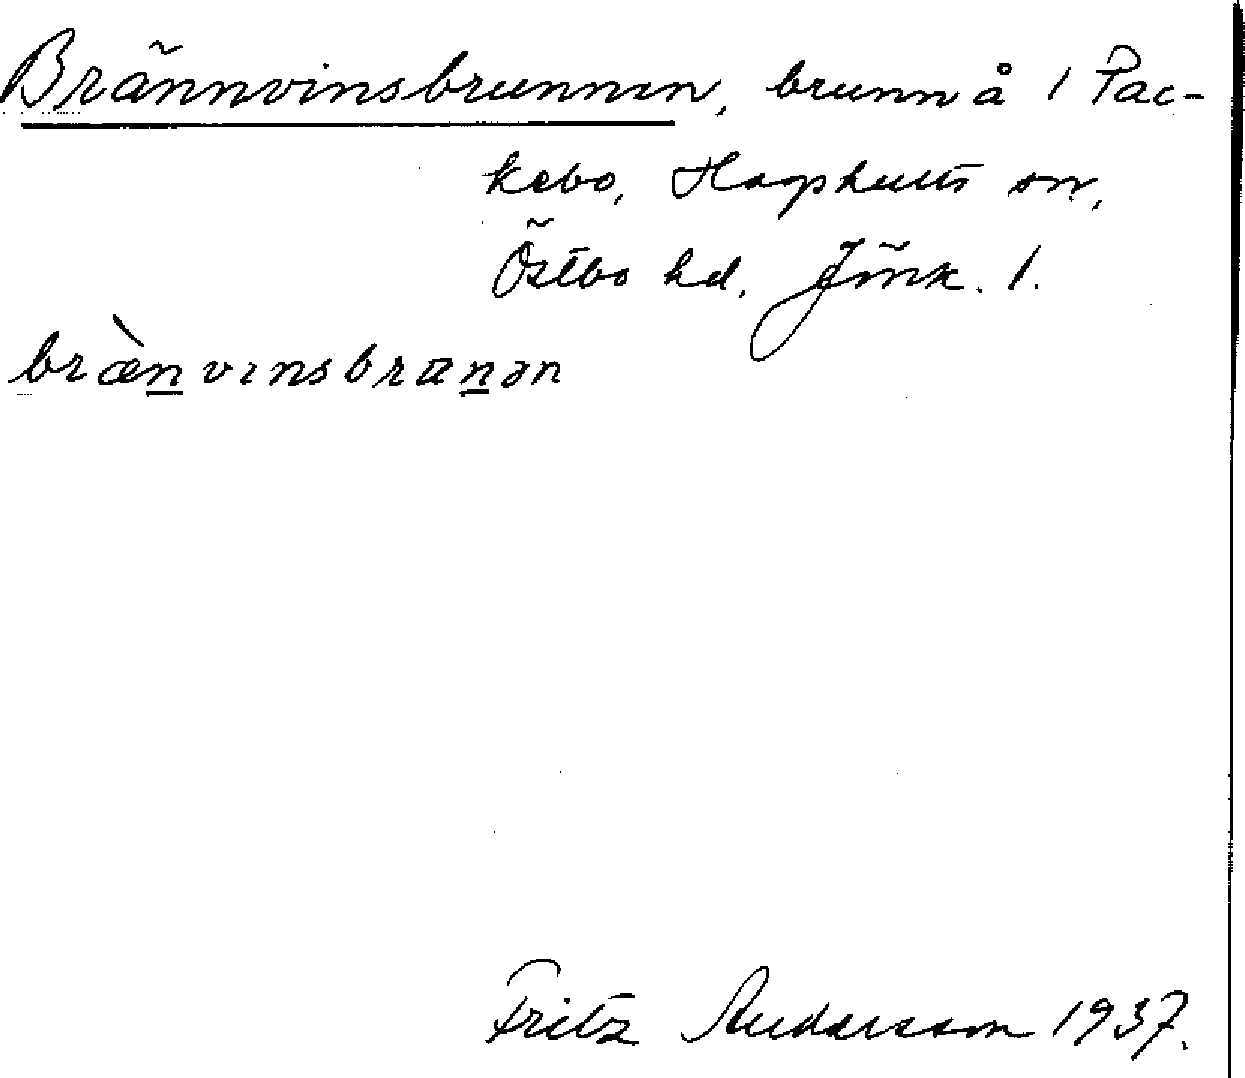 Brännvinsbrunnen, brunn å 1 Pac-
kebo, Hagshults sn,
Östbo hd, Jönk. l.
bræ̀n̲vınsbrun̲ən
Fritz Andersson 1937.